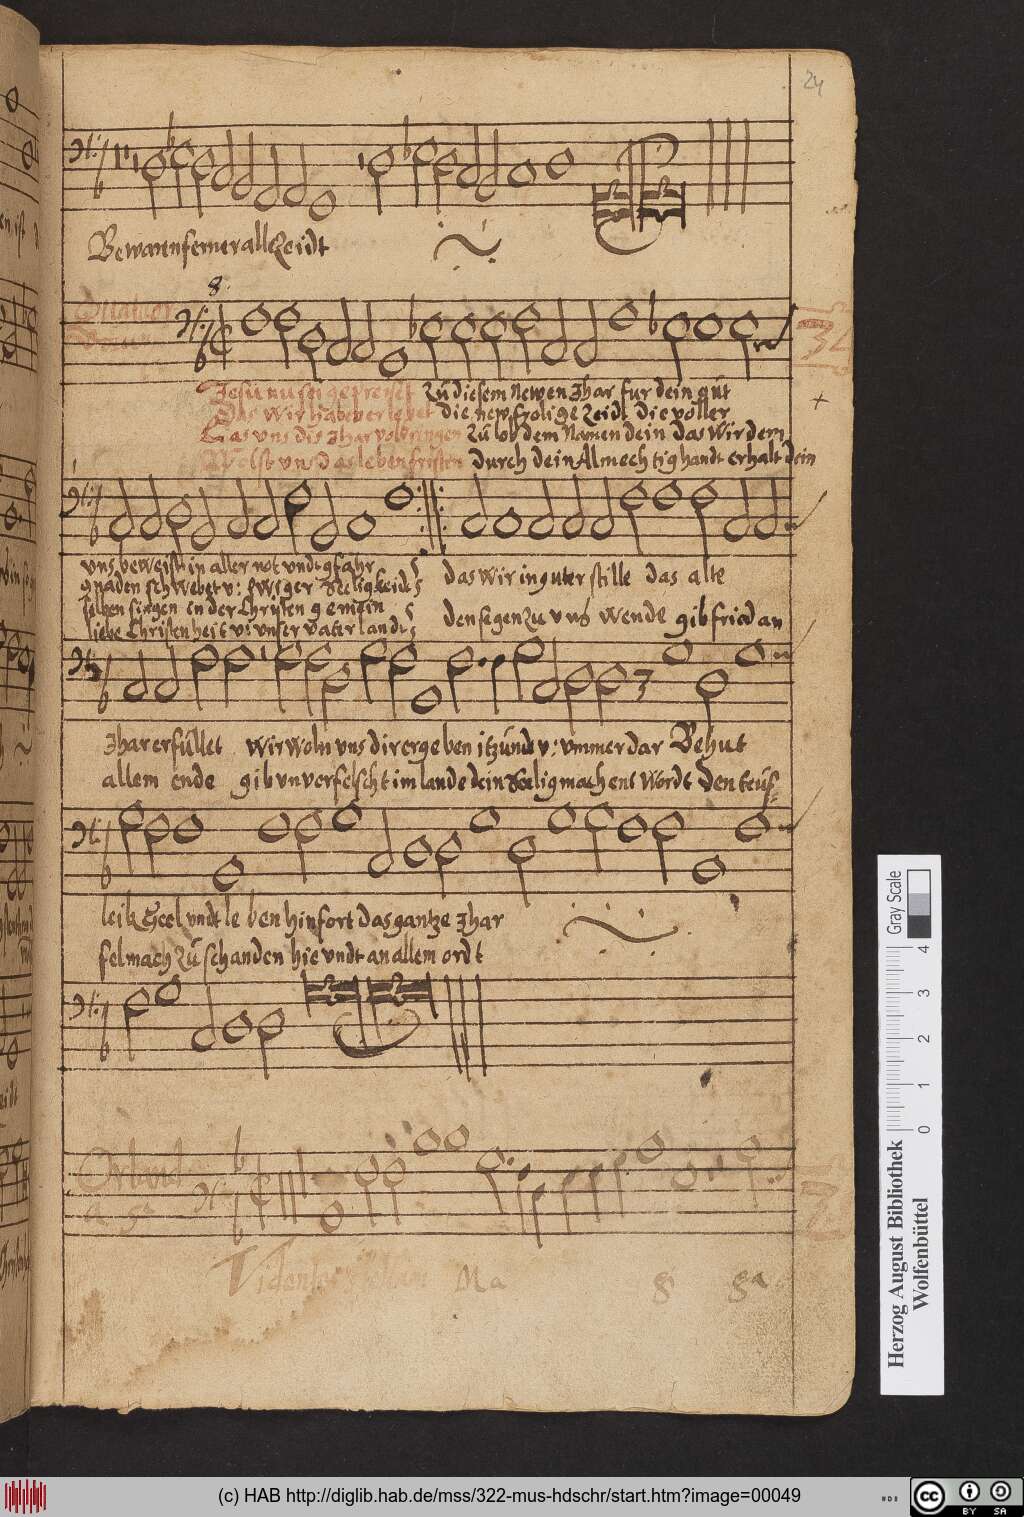 24
Bewaren ferner alle Zeidt
8.
Quatuor
32
Jesu nu sei gepreiset Zu diesem Newen Jhar fur dein gut
Das Wir haben erlebet die new frolige Zeidt die voller
Las uns dis Jhar volbringen Zu lob dem Namen dein das Wir dem
Wolst uns das leben fristen durch dein Almechtig handt erhalt dein
uns beweist in aller not undt gfahr das Wir in guter stille das alte
gnaden schwebet u: ewiger Seeligkeidt
selben singen in der Christen gemein den segen zu uns wende gib fried an
liebe Christenheit u: unser vater landt
Jhar erfullet Wir Woln uns dir ergeben itzundt u: ummer dar Behut
allem ende gib unverfelscht im lande dein Seeligmachent Wordt den teuf-
leib Seel undt leben hinfort das gantze Jhar
fel mach zu schanden hie undt an allem ordt
Orland
33
Videntes Ma g ga
Gray Scale
0 1 2 3 4
Herzog August Bibliothek
Wolfenbüttel
(c) HAB http://diglib.hab.de/mss/322-mus-hdschr/start.htm?image=00049
cc BY SA